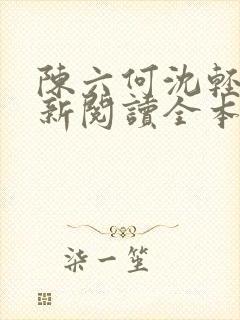 陳六何沈輕
新閱讀全本
柒一笙